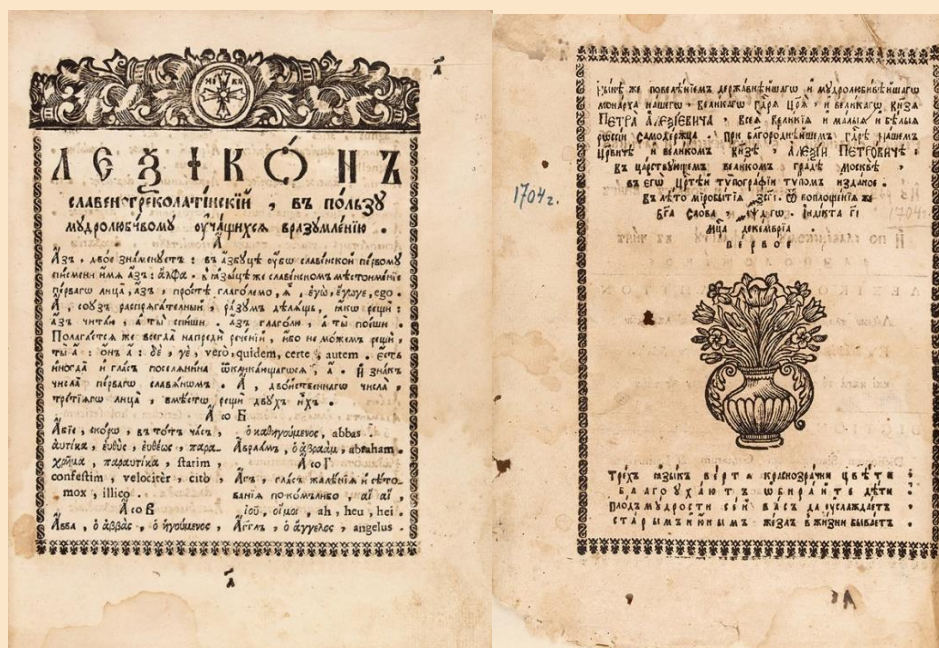 ЛЕѮІКѠ́НЪ
славеногреколаті́нскїй , въ по́льзу
мудролюби́вому оу҆ча́щихсѧ вразꙋмле́нїю .
А҆
А҆́зъ . двоѐ зна́менуетъ : въ а҆́збуцѣ оу҆́бѡ славе́нской пе́рвому
пи́смени и҆́мѧ а҆́зъ : ἄλφα . въ ꙗ҆зы́цѣ же славе́нскомъ мѣстоиме́нїе
пе́рвагѡ лица̀ , а҆́зъ , про́стѣ глаго́лемо , ѧ҆̀ , ἐγὼ , ἔγωγε , ego .
А҆̀ , сою́зъ распрѧга́телный , ра́зумъ дѣлѧ́щь , ꙗ҆́кѡ рещѝ :
а҆́зъ чита́ю , а҆ ты̀ спи́ши . а҆́зъ глаго́лю , а҆ ты̀ пое́ши .
Полага́етсѧ же всегда̀ напредѝ рече́нїй , и҆́бо не мо́жемъ рещѝ ,
ты̀ а҆̀ : о҆́нъ а҆̀ : δὲ , γὲ , verò , quidem , certe , autem . є҆́сть
и҆ногда̀ и҆ гла́съ поселѧ́нина , а҆̀ . И҆ зна́къ
числа̀ пе́рвагѡ славѧ́нѡмъ . А҆̀ , дво́йственнагѡ числа̀ ,
тре́тїѧгѡ лица̀ , вмѣ́стѡ рещѝ двꙋ́хъ и҆́хъ .
А҆ со Б
А҆́бїе , ско́рѡ , въ то́тъ ча́съ ,
ἀυτίκα , ἐυθὺς , ἐυθέως , παρα
χρῆμα , παραυτίκα , statim ,
confestim , velocitèr , citò ,
mox , illico .
А҆ со В
А҆́вва , ὁ ἀββᾶς , ὁ ἡγούμενος ,
ὁ καθηγούμενος , abbas .
А҆враа́мъ , ὁ ἀβραὰμ , abraham .
А҆ со Г
А҆́гъ , гла́съ жалѣ́нїѧ и҆ сѣ́то
ванїѧ по ко́мълибо , αἲ αἲ ,
ἰοὺ , οἴμοι , ah , heu , hei .
А҆́гг҃лъ , ὁ ἄγγελος , angelus .
а҃
1704 г.
Нн҃ѣ же повелѣ́нїемъ держа́внѣйшагѡ и҆ мудролюби́вѣйшагѡ
мона́рха на́шегѡ , вели́кагѡ гдⷭ҇рѧ цр҃ѧ̀ , и҆ вели́кагѡ кнѧ́зѧ
ПЕТРА̀ А҆ЛЕѮІ́ЕВИЧА , всеѧ̀ вели́кїѧ и҆ ма́лыѧ и҆ бѣ́лыѧ
рѡссі́и самоде́ржца . При благоро́днѣйшемъ гдⷭ҇рѣ на́шемъ
цр҃е́вичѣ и҆ вели́комъ кнѧ́зѣ , А҆ЛЕѮІ́И ПЕТРО́ВИЧѢ .
въ ца́рствующемъ вели́комъ гра́дѣ москвѣ̀ ,
въ є҆гѡ̀ црⷭ҇тѣй тѷпогра́фїи тѷ́помъ и҆́здано .
Въ лѣ́то міробытїѧ̀ ҂зс҃гі . Ѿ воплоще́нїѧ же
бг҃а сло́ва , ҂аѱ҃д гѡ . і҆ндї́кта гі҃
мцⷭ҇а декемврі́а
пе́рвое
Трех ꙗзы́къ ве́рта краснозра́чни цвѣ́ты :
благоуха́ютъ ѡбира́йте дѣ́ти
Плодъ му́дрости сей ва́съ да оуслажда́етъ :
ста́рымъ и ю́нымъ же́злъ в жи́зни быва́етъ .